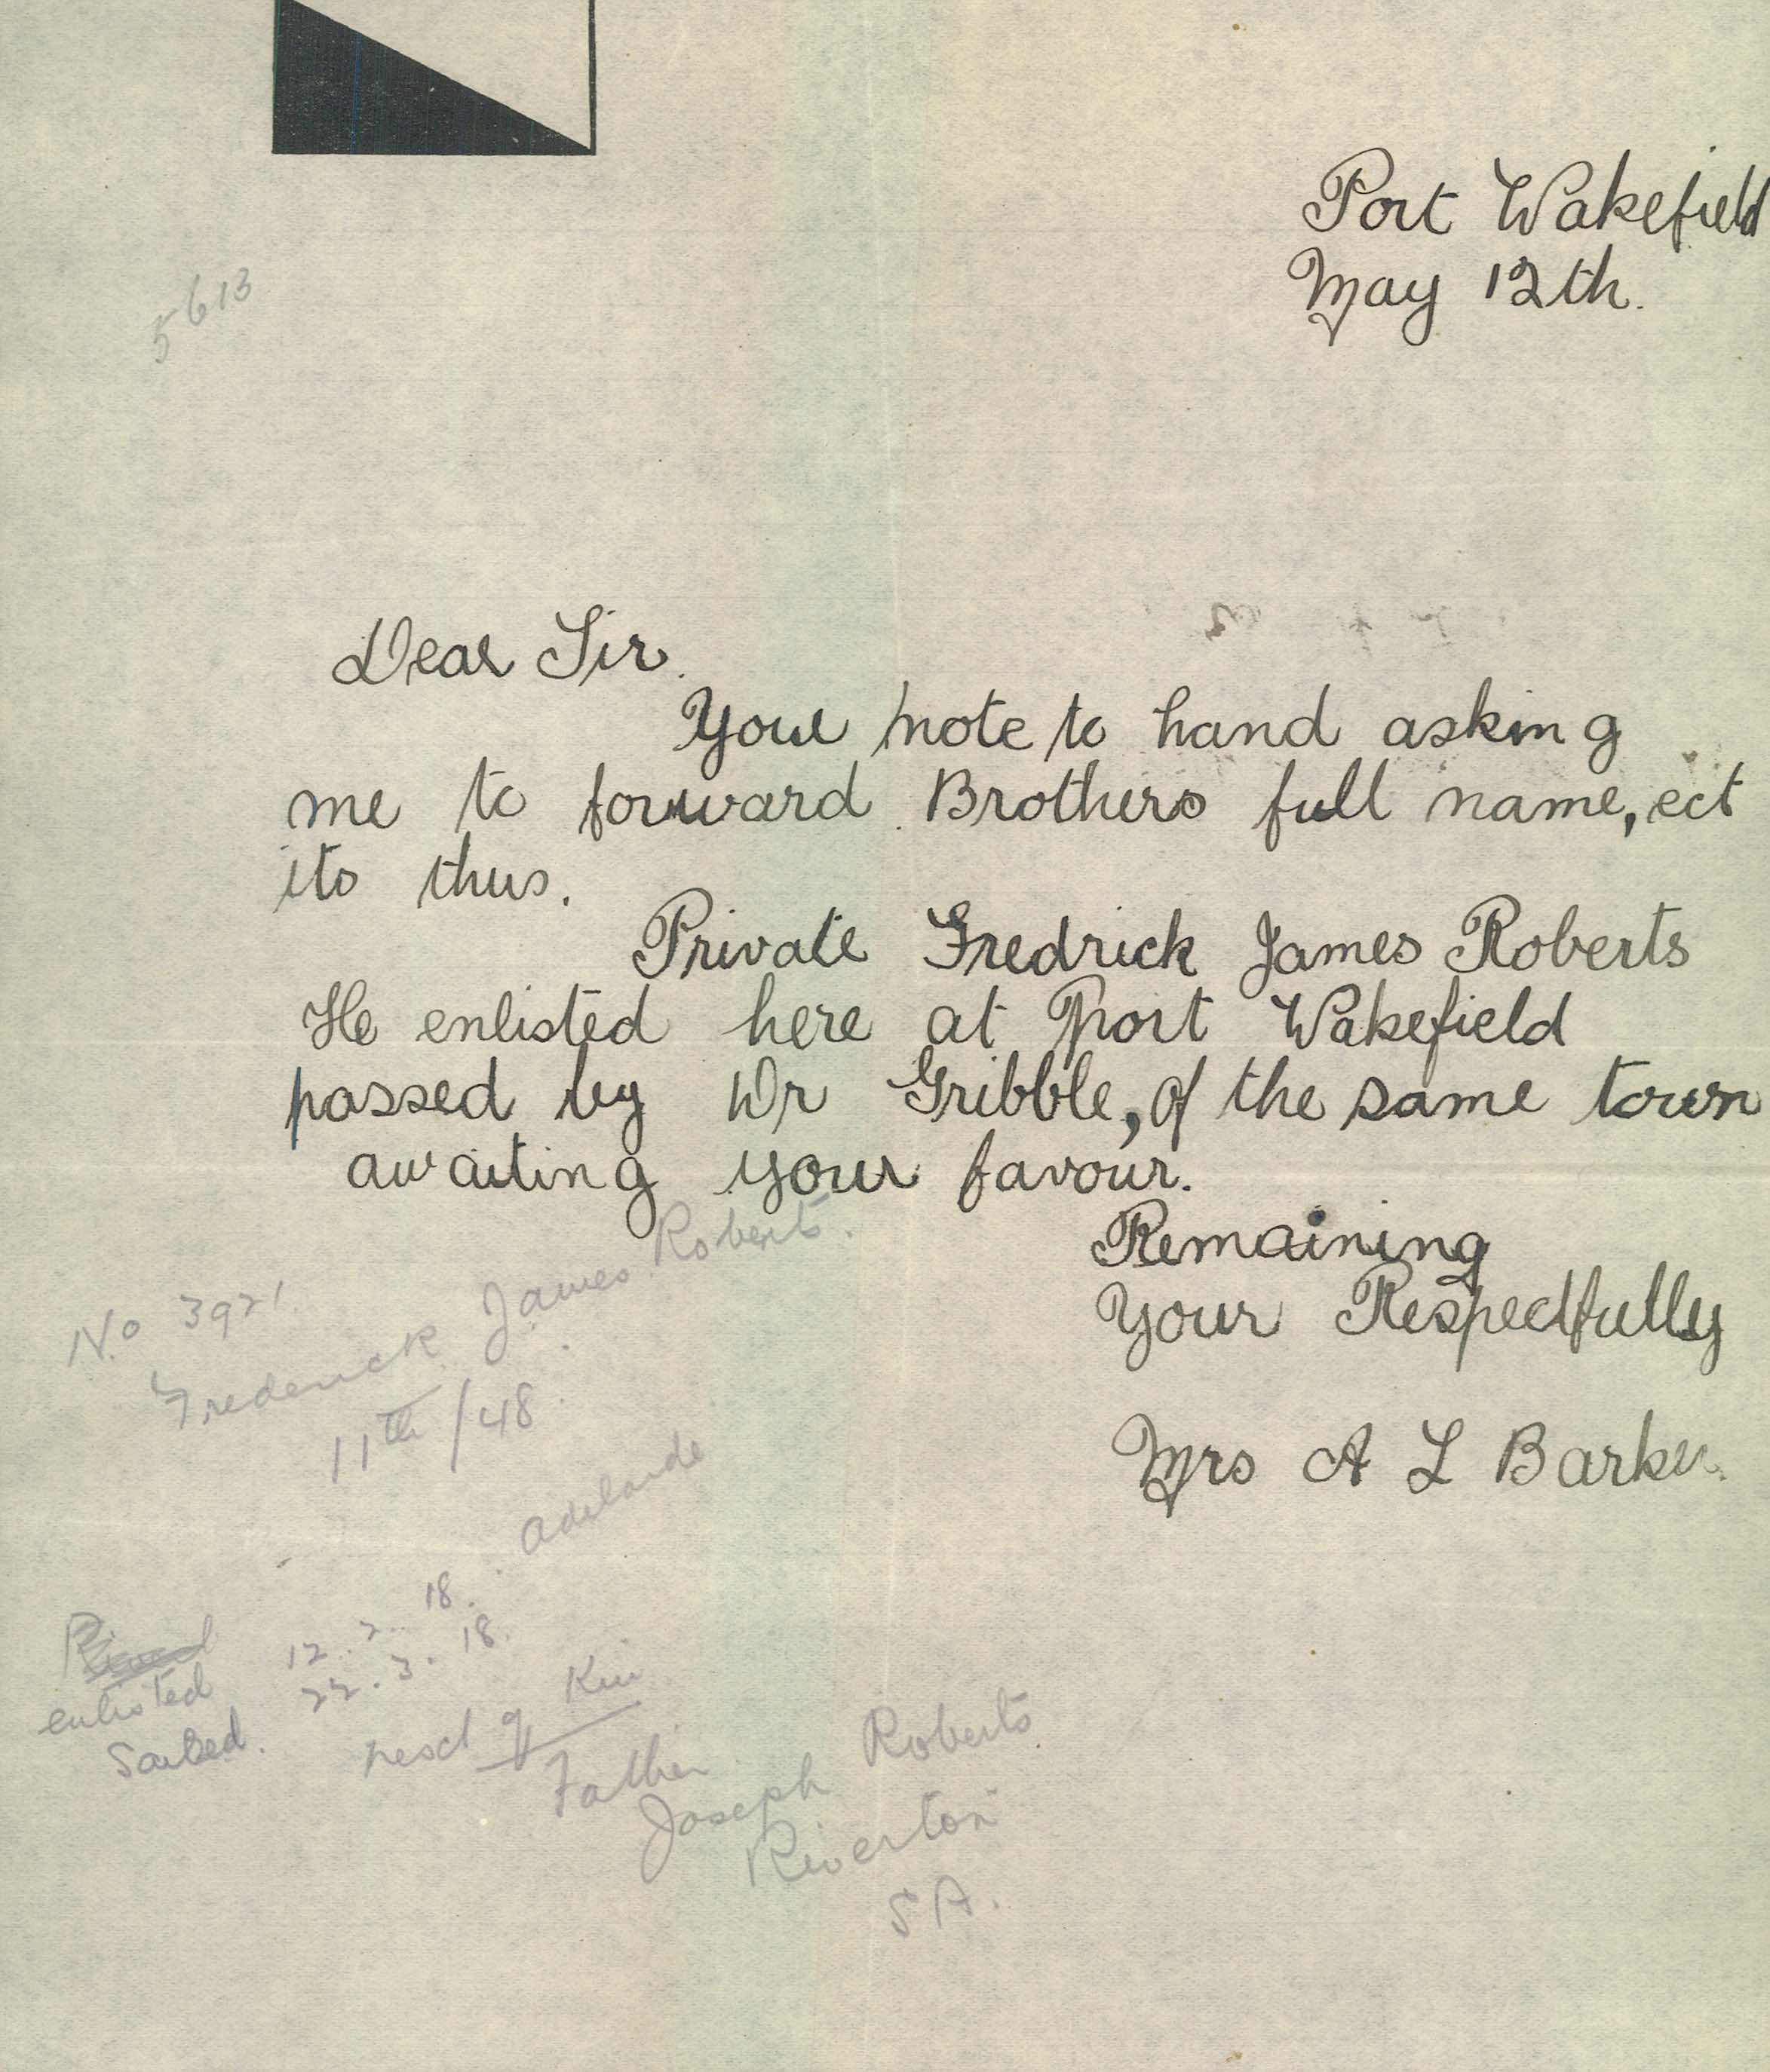 Port Wakefield
May 12th.
5613
Dear Sir.
Your note to hand asking
me to forward Brothers full name, ect
its thus.
Private Fredrick James Roberts
He enlisted here at Port Wakefield
passed by Dr Gribble, of the same town
awaiting your favour.
Remaining
Your Respectfully
Mrs A L Barker.
No 3921.
Frederick James Roberts.
11th/48.
Adelaide
enlisted 12.2.18.
Sailed. 22.3.18.
next of Kin
Father
Joseph Roberts.
Riverton
S A.